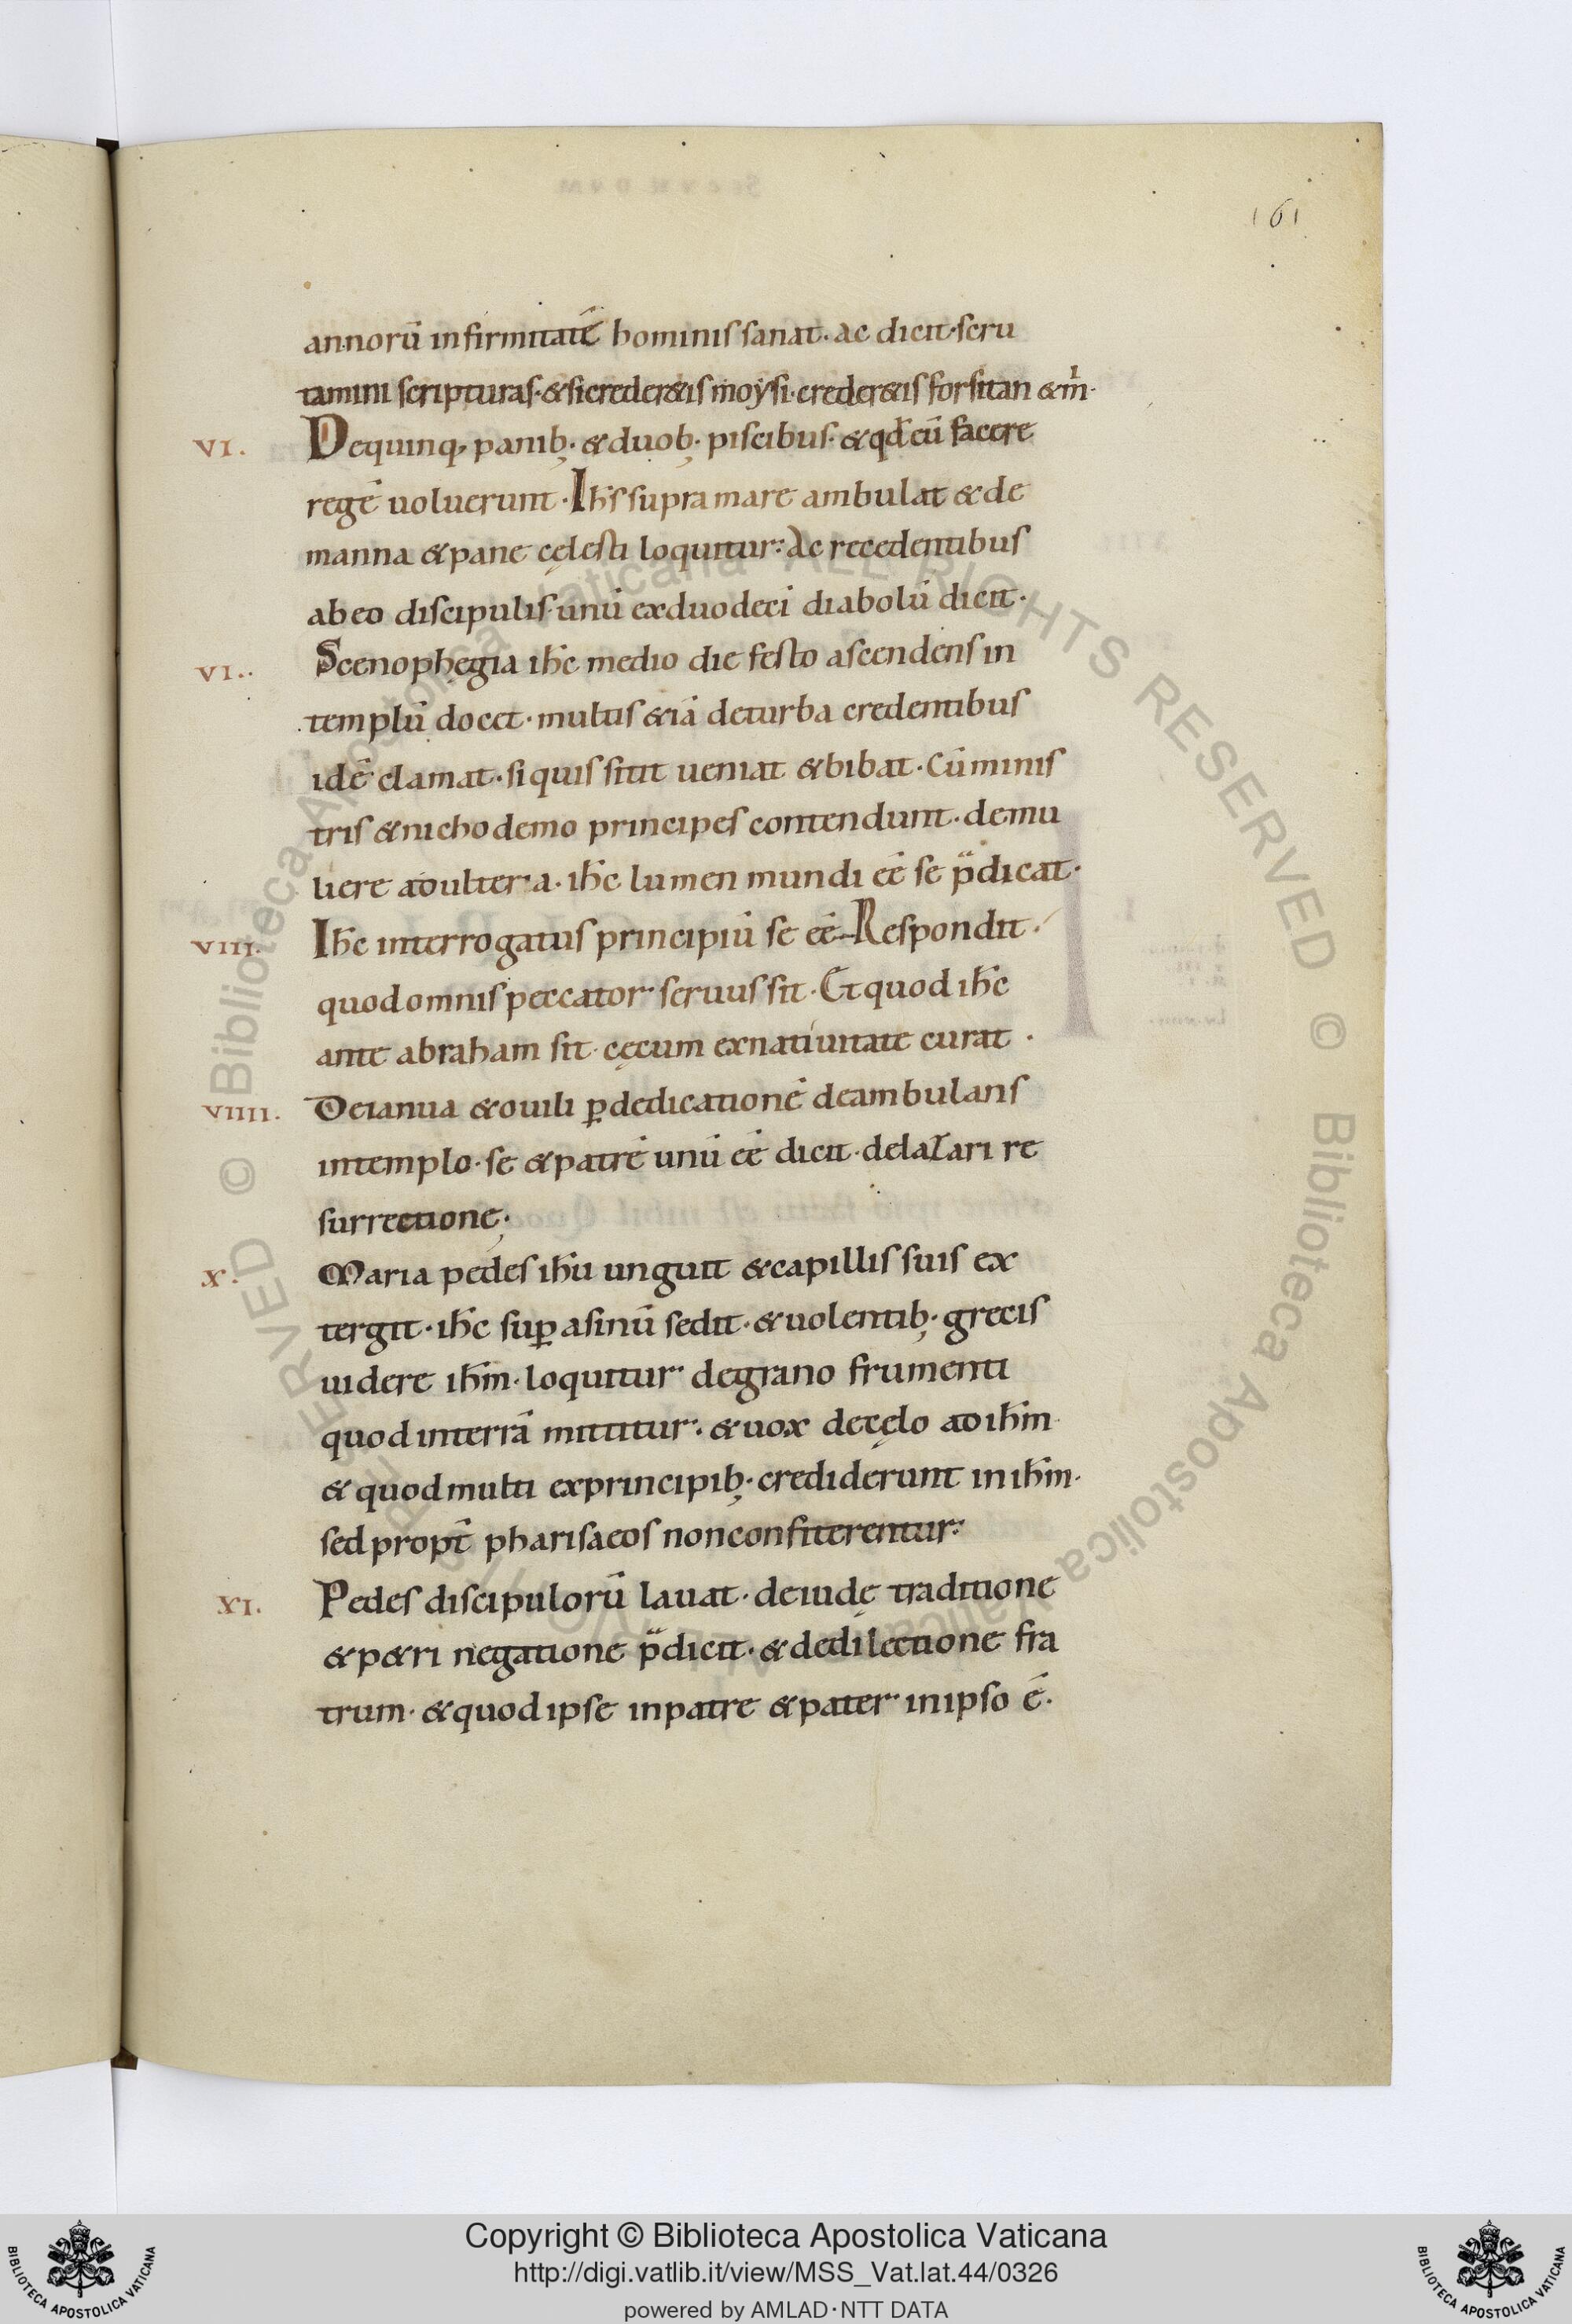 161
annorū infirmitatē hominis sanat. ac dicit. scru
tamini scripturas. & si creder&is moysi. creder&is forsitan & m̄.
VI. De quinq; panib; & duob; piscibus. & qđ eū facere
regē uoluerunt. Ih̄s supra mare ambulat & de
manna & pane cęlesti loquitur. Ac recedentibus
ab eo discipulis. unū ex duodeci diabolū dicit.
VI.. Scenophęgia ih̄c medio die festo ascendens in
templū docet. multis & iā de turba credentibus
idē clamat. si quis sitit ueniat & bibat. Cū minis
tris & nichodemo principes contendunt. de mu
liere adultera. ih̄c lumen mundi eē se p̄dicat.
VIII. Ih̄c interrogatus principiū se eē Respondit.
quod omnis peccator seruus sit. Et quod ih̄c
ante abraham sit. cęcum ex natiuitate curat.
VIIII. De ianua & ouili ꝑ dedicationē deambulans
in templo. se & patrē unū eē dicit. de lazari re
surrectione;
X. Maria pedes ih̄u unguit & capillis suis ex
tergit. ih̄c suꝑ asinū sedit. & uolentib; grecis
uidere ih̄m. loquitur de grano frumenti
quod in terrā mittitur. & uox de cęlo ad ih̄m
& quod multi ex principib; crediderunt in ih̄m.
sed propt̄ pharisaeos non confiterentur.
XI. Pedes discipulorū lauat. de iudę traditione
& p&ri negatione p̄dicit. & de dilectione fra
trum. & quod ipse in patre & pater in ipso ē.
Copyright © Biblioteca Apostolica Vaticana
http://digi.vatlib.it/view/MSS_Vat.lat.44/0326
powered by AMLAD·NTT DATA
BIBLIOTECA APOSTOLICA VATICANA
BIBLIOTECA APOSTOLICA VATICANA